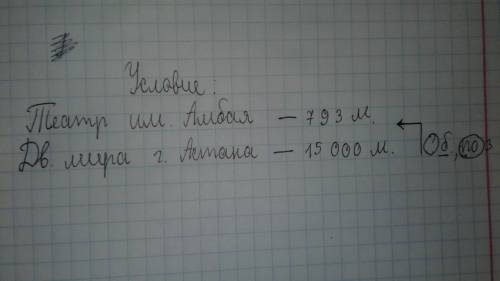 Условие:
Театр им. Амбая — 793 м.
Дв. мира г. Астана — 15 000 м.
Об, по